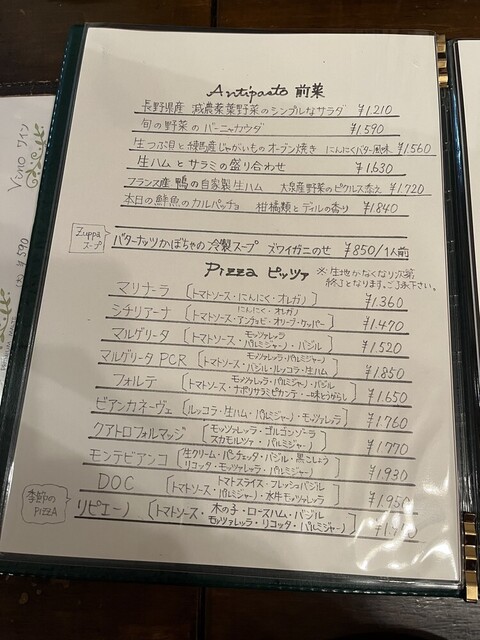 Antipasto 前菜
長野県産 減農薬葉野菜のシンプルなサラダ ¥1.210
旬の野菜の バーニャカウダ ¥1.590
生つぶ貝と じゃがいものオーブン焼き にんにくバター風味 ¥1.560
生ハムとサラミの盛り合わせ ¥1.630
フランス産 鴨の自家製生ハム 大泉産野菜のピクルス添え ¥1.720
本日の鮮魚のカルパッチョ 柑橘類とディルの香り ¥1.840
Zuppa
スープ
バターナッツかぼちゃの冷製スープ ズワイガニのせ ¥850/1人前
Pizza ピッツァ ※生地がなくなり次第
終了となります。ご了承下さい。
マリナーラ (トマトソース・にんにく・オレガノ) ¥1.360
シチリアーナ (トマトソース・アンチョビ・オリーブ・ケッパー にんにく・オレガノ) ¥1.470
マルゲリータ (トマトソース・モッツァレラ・パルミジャーノ・バジル) ¥1.520
マルゲリータ PCR (トマトソース・モッツァレラ・パルミジャーノ・バジル・ルッコラ・生ハム) ¥1.850
フォルテ (トマトソース・モッツァレラ・パルミジャーノ・バジル・ナポリサラミピカンテ・一味とうがらし) ¥1.650
ビアンカネーヴェ (ルッコラ・生ハム・パルミジャーノ・モッツァレラ) ¥1.760
クアトロフォルマッジ (モッツァレラ・ゴルゴンゾーラ
スカモルツァ・パルミジャーノ) ¥1.770
モンテビアンコ (生クリーム・パンチェッタ・バジル・黒こしょう
リコッタ・モッツァレラ・パルミジャーノ) ¥1.930
DOC (トマトソース・トマトスライス・フレッシュバジル・パルミジャーノ・水牛モッツァレラ) ¥1.950
季節の
PIZZA
リピエーノ (トマトソース・木の子・ロースハム・バジル
モッツァレラ・リコッタ・パルミジャーノ)
Vino ワイン
¥590